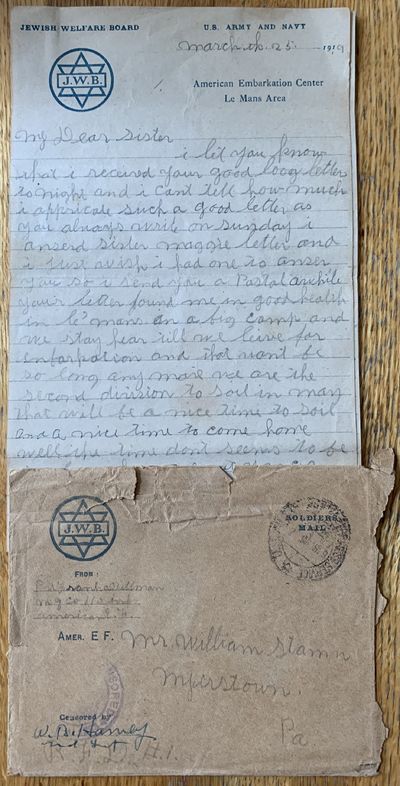 JEWISH WELFARE BOARD U. S. ARMY AND NAVY
march th 25 1919
J.W.B.
American Embarkation Center
Le Mans Area
my Dear sister
i let you know
that i received your good long letter
to night and i cant tell how much
i appricate such a good letter as
you always write on sunday i
anserd sister maggie letter and
i Just wish i had one to anser
you so i send you a Postal awhile
your letter found me in good health
in le mans in a big camp and
we stay hear till we leive for
enbarpation and that wont be
so long any more we are the
second division to soil in may
that will be a nice time to soil
and a nice time to come home
well the time dont seems to be
J.W.B.
SOLDIERS
MAIL
FROM:
AMER. E F.
Mr. William Stamn
Myerstown.
Pa
Censored by